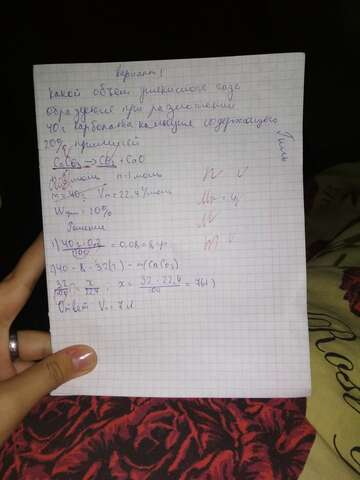 Вариант 1
Какой объем углекислого газа
образуется при разложении
40 г карбоната кальция содержащего
20% примесей
CaCO3 → CO2 + CaO
n=1 моль n=1 моль
m=40г Vm=22,4 л/моль
Wприм = 20%
Решение
1) 40
= 0,08 = 8 г
2) 40 - 8 = 32(г) - m(CaCO3)
32/100 = x/22,4 ; x = 32 · 22,4 / 100 = 7(л)
Ответ V = 7 л
n V
M
M
m V